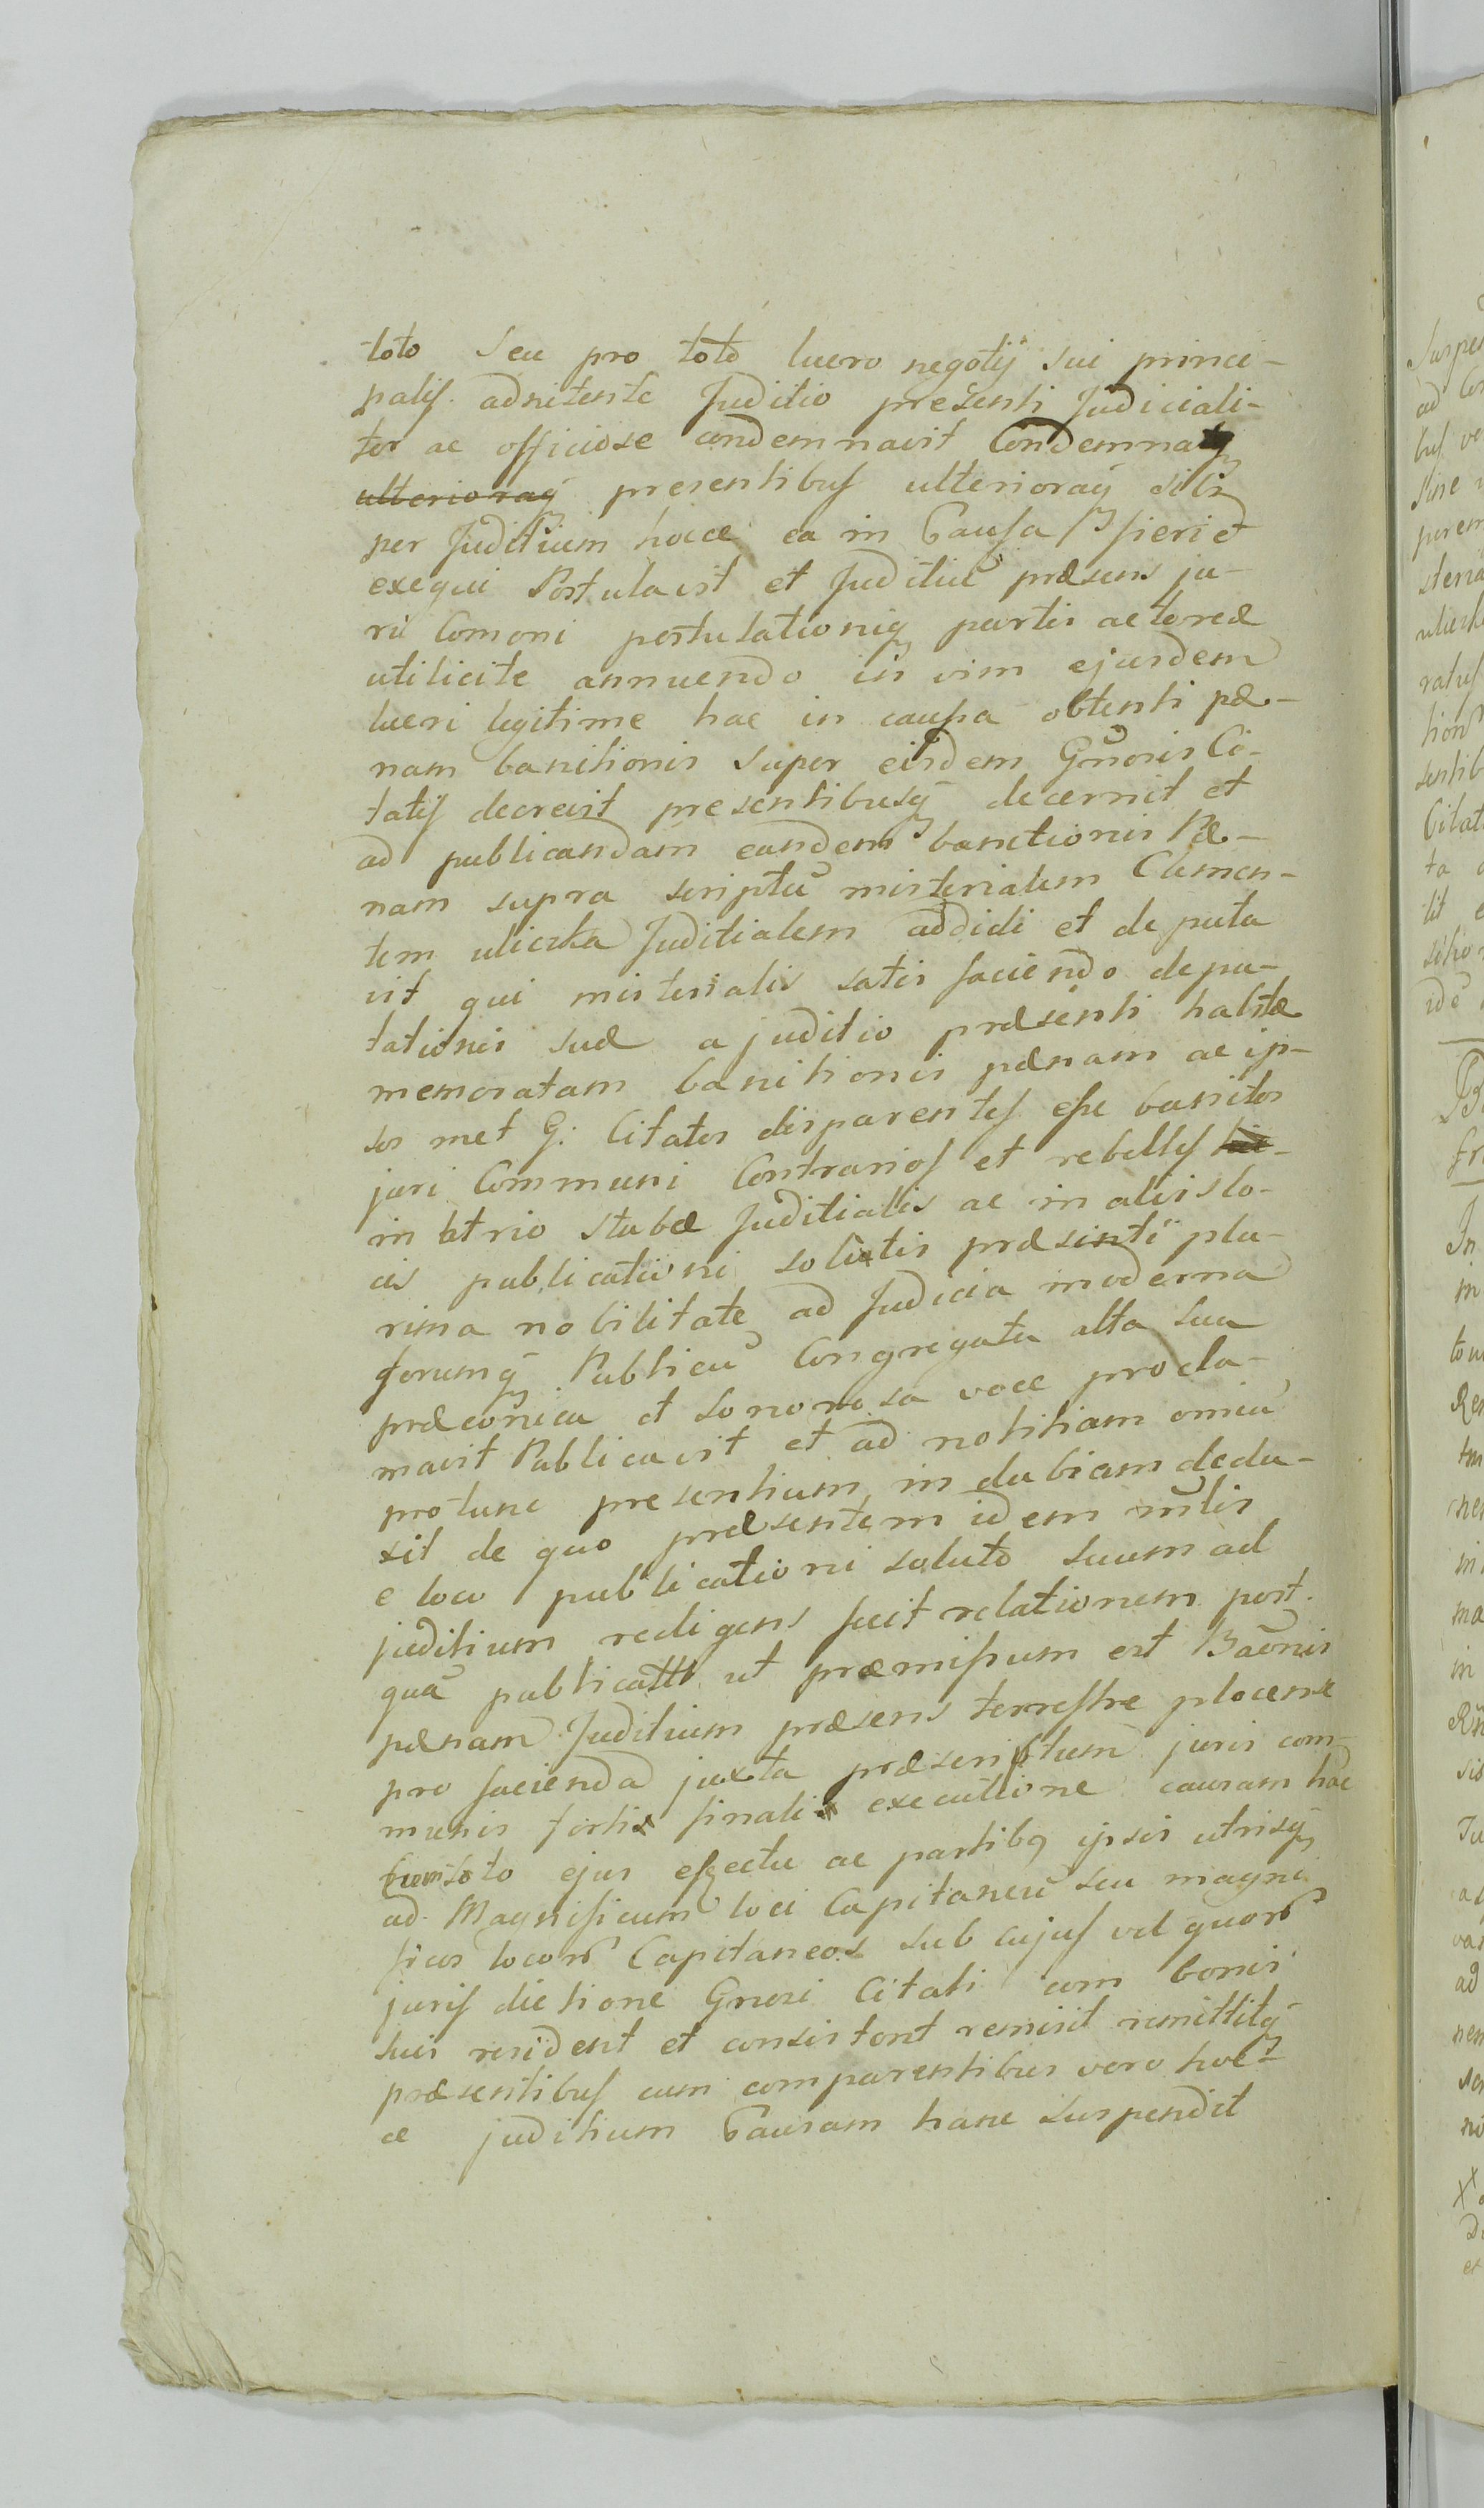 toto seu pro toto lucro negotij sui princi-
palis. adnitente Juditio presenti Judiciali-
ter ac officiose condemnavit Condemnatq
ulterioraq presentibus ulterioraq sibi
per Juditium hocce ea in Causa fieri et
exequi Postulavit et Juditiũ præsens ju-
ri Comoni postulationiq partis actoreæ
uti licite annuendo in vim ejusdem
lucri legitime hac in causa obtenti pæ-
nam banitionis super eisdem Gnõsis Ci-
tatis decrevit presentibusq decernit et
ad publicandam eandem banctionis Pæ-
nam supra scriptũ misterialem Clemen-
tem uliczka Juditialem addidi et deputa
vit qui misterialis satis faciendo depu-
tationis suæ a juditio præsenti habitæ
memoratam banitionis pænam ac ip-
sos met G: Citatos disparentes esse banitos
juri Communi Contrarios et rebelles
in atrio stubæ Juditialis ac in aliis lo-
cis publicationi solitis præsinti plu-
rima nobilitate ad Judicia moderna
forumq Publicũ Congregata alta sua
præconica et sonorosa voce procla-
mavit Publicavit et ad notitiam omiũ
protunc presentium in dubiam dedu-
xit de quo præsentem idem mĩlis
e loco publicationi soluto suum ad
juditium redigens fecit relationem post.
quã publicatã ut præmissum est Baõnis
pænam Juditium præsens terrestre plocense
pro facienda juxta præscriptum juris com-
munis fortis finali executione causam hac
cum toto ejus effectu ac partibq ipsis utrisq
ad Magnificum loci Capitaneũ seu magni
ficos locorũ Capitaneos sub cujus vel quorũ
juris dictione Gnosi Citati cum bonis
suis resident et consistont remisit remittitq
præsentibus cum comparentibus vero hoc-
ce juditium Causam hanc suspendit